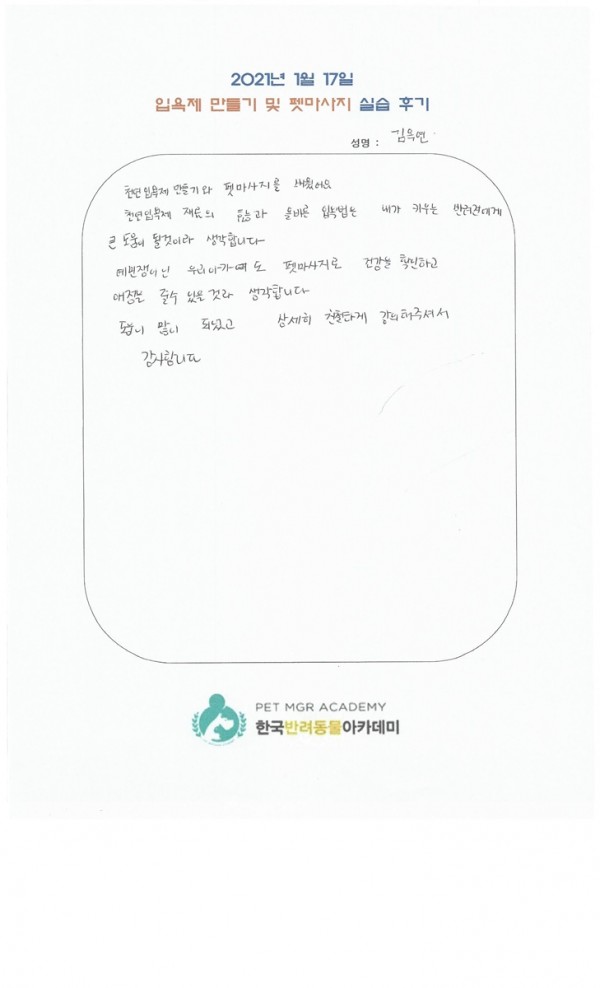 2021년 1월 17일
입욕제 만들기 및 펫마사지 실습 후기
성명 : 김욱연
천연입욕제 만들기와 펫마사지를 배웠어요
천연입욕제 재료의 효능과 올바른 입욕법는 내가 키우는 반려견에게
큰 도움이 될것이라 생각합니다
우리아가에 도 펫마사지로 건강을 확인하고
애정을 줄수 있을 것라 생각합니다
도움이 많이 되었고 상세히 친절하게 강의해주셔서
감사합니다
PET MGR ACADEMY
한국반려동물아카데미